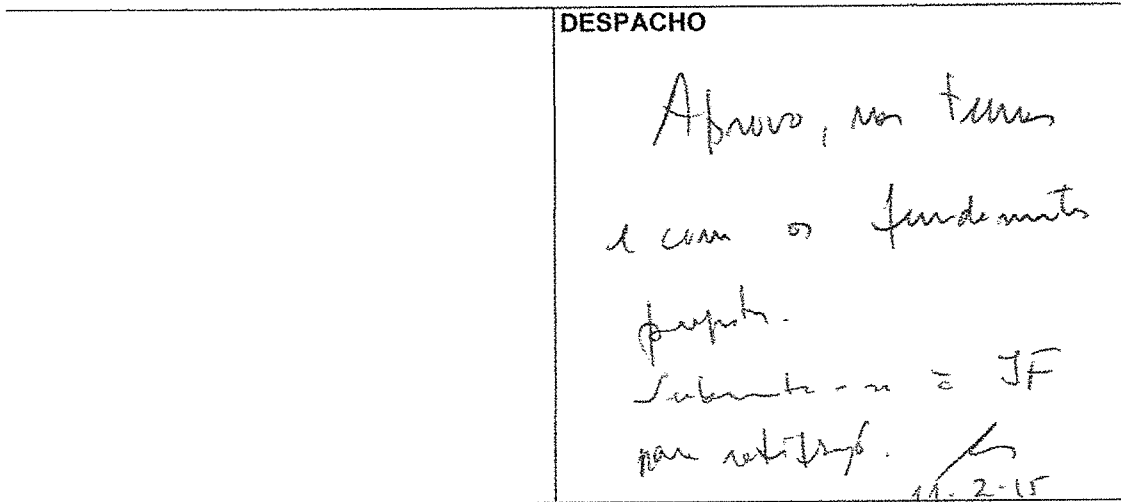 DESPACHO
Aprovo, nos termos
e com os fundamentos
propostos.
Submeta-se à JF
para ratificação.
11.2-15